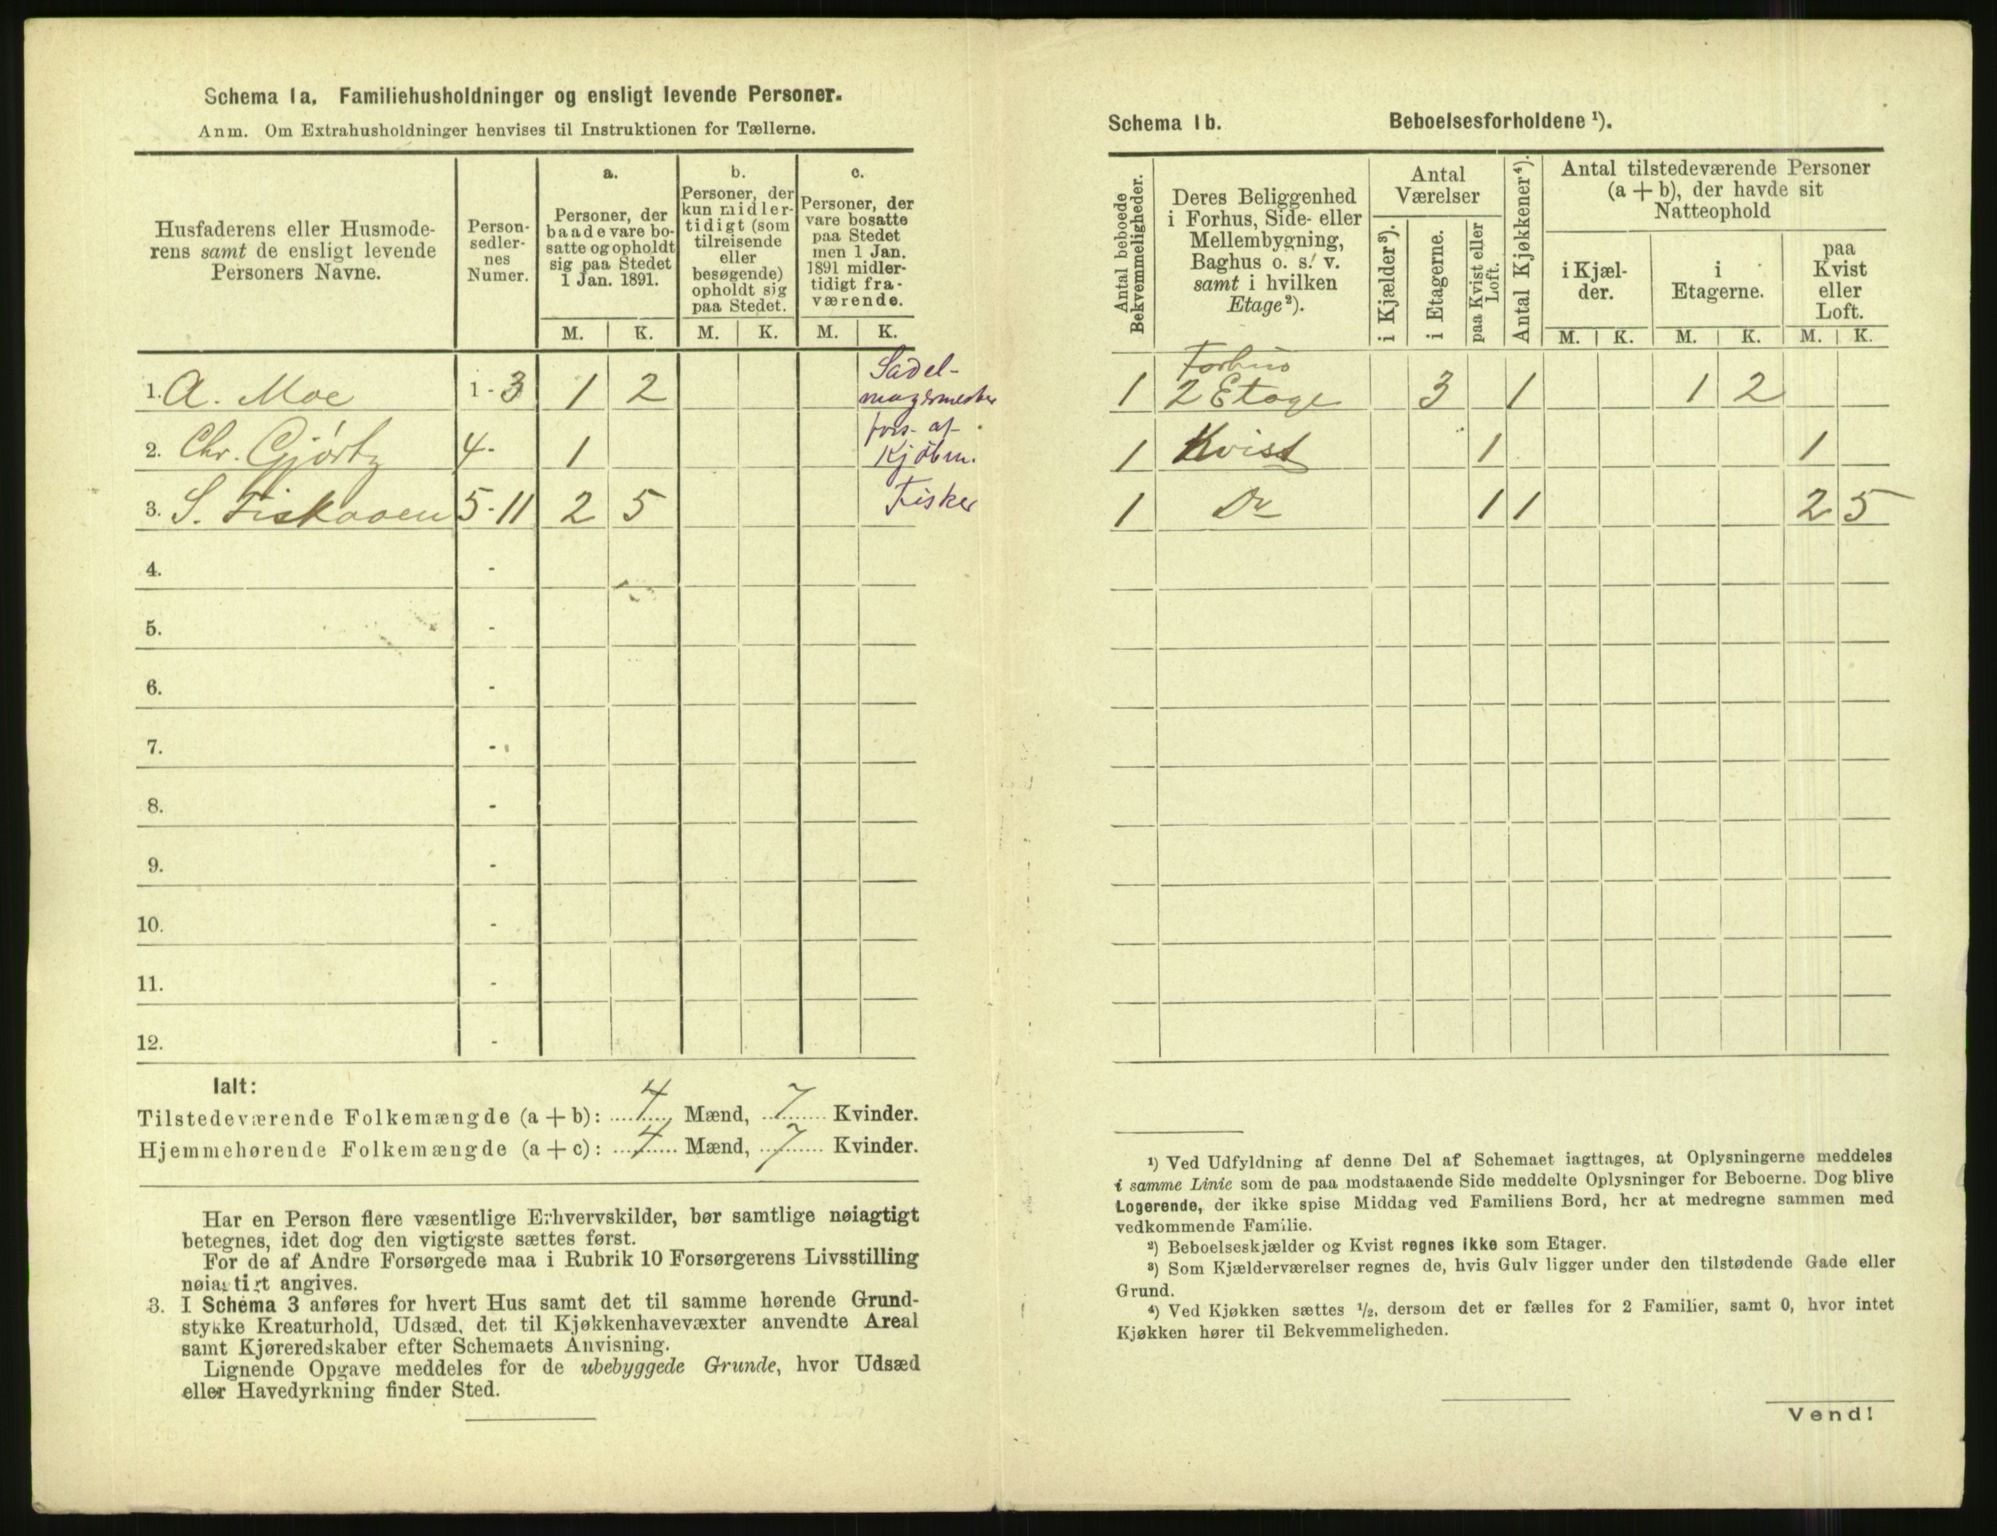 Schema 1a. Familiehusholdninger og ensligt levende Personer.
Anm. Om Extrahusholdninger henvises til Instruktionen for Tællerne.
Husfaderens eller Husmode-
rens samt de ensligt levende
Personers Navne.
Person-
sedler-
nes
Numer.
a.
Personer, der
baade vare bo-
satte og opholdt
sig paa Stedet
1 Jan. 1891.
b.
Personer, der
kun midler-
tidigt (som
tilreisende
eller
besøgende)
opholdt sig
paa Stedet.
c.
Personer, der
vare bosatte
paa Stedet
men 1 Jan.
1891 midler-
tidigt fra-
værende.
M. K. M. K. M. K.
1. A. Moe 1-3 1 2 Sadel-
magermester
2. Chr. Gjörtz 4- 1 fors. af
Kjøbm.
3. S. Fiskaaen 5-11 2 5 Fisker
4. -
5. -
6. -
7. -
8. -
9. -
10. -
11. -
12. -
Ialt:
Tilstedeværende Folkemængde (a + b): 4 Mænd, 7 Kvinder.
Hjemmehørende Folkemængde (a + c): 4 Mænd, 7 Kvinder.
Har en Person flere væsentlige Erhvervskilder, bør samtlige nøiagtigt
betegnes, idet dog den vigtigste sættes først.
For de af Andre Forsørgede maa i Rubrik 10 Forsørgerens Livsstilling
nøiagtigt angives.
3. I Schema 3 anføres for hvert Hus samt det til samme hørende Grund-
stykke Kreaturhold, Udsæd, det til Kjøkkenhavevæxter anvendte Areal
samt Kjøreredskaber efter Schemaets Anvisning.
Lignende Opgave meddeles for de ubebyggede Grunde, hvor Udsæd
eller Havedyrkning finder Sted.
Schema 1b. Beboelsesforholdene ¹).
Antal beboede
Bekvemmeligheder.
Deres Beliggenhed
i Forhus, Side- eller
Mellembygning,
Baghus o. s. v.
samt i hvilken
Etage²).
Antal
Værelser
i Kjælder³).
i Etagerne.
paa Kvist eller
Loft.
Antal Kjøkkener⁴).
Antal tilstedeværende Personer
(a + b), der havde sit
Natteophold
i Kjæl-
der.
i
Etagerne.
paa
Kvist
eller
Loft.
M. K. M. K. M. K.
Forhus
1 2 Etage 3 1 1 2
1 Kvist 1 1
1 Do 1 1 2 5
¹) Ved Udfyldning af denne Del af Schemaet iagttages, at Oplysningerne meddeles
i samme Linie som de paa modstaaende Side meddelte Oplysninger for Beboerne. Dog blive
Logerende, der ikke spise Middag ved Familiens Bord, her at medregne sammen med
vedkommende Familie.
²) Beboelseskjælder og Kvist regnes ikke som Etager.
³) Som Kjælderværelser regnes de, hvis Gulv ligger under den tilstødende Gade eller
Grund.
⁴) Ved Kjøkken sættes ½, dersom det er fælles for 2 Familier, samt 0, hvor intet
Kjøkken hører til Bekvemmeligheden.
Vend!